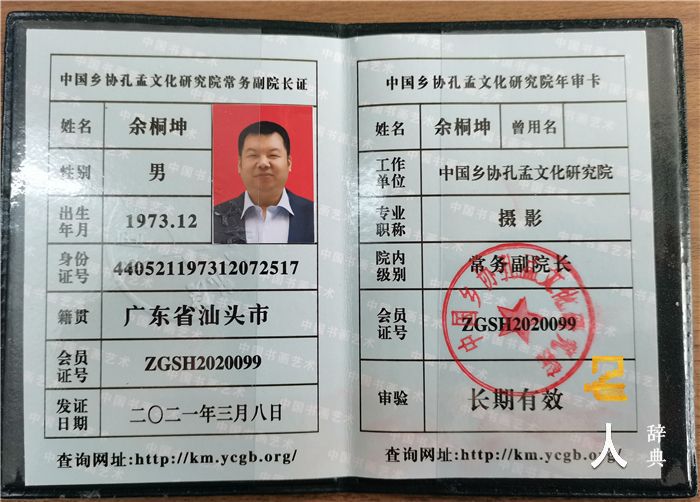 中国乡协孔孟文化研究院常务副院长证
姓名 余桐坤
性别 男
出生年月 1973.12
身份证号 440521197312072517
籍贯 广东省汕头市
会员证号 ZGSH2020099
发证日期 二〇二一年三月八日
查询网址:http://km.ycgb.org/
中国乡协孔孟文化研究院年审卡
姓名 余桐坤 曾用名
工作单位 中国乡协孔孟文化研究院
专业职称 摄影
院内级别 常务副院长
会员证号 ZGSH2020099
审验 长期有效
查询网址:http://km.ycgb.org/
中国书画艺术
人 辞典